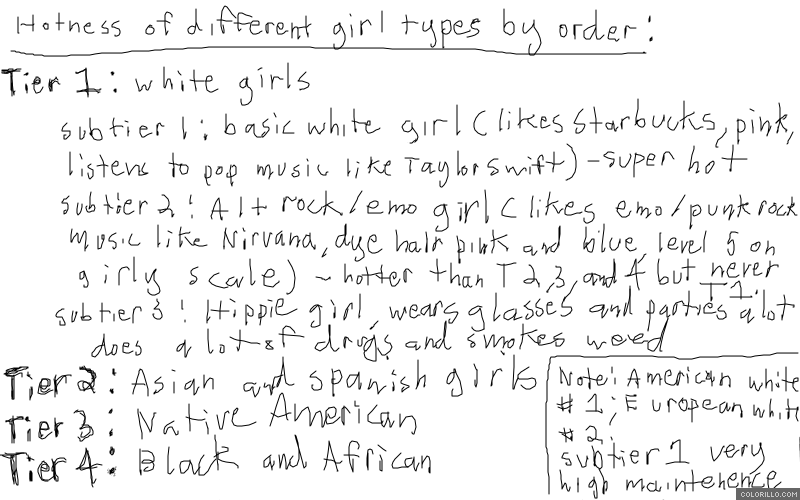 Hotness of different girl types by order:
Tier 1: white girls
subtier 1: basic white girl (likes Starbucks, pink,
listens to pop music like Taylor Swift) - super hot
subtier 2: Alt rock/emo girl (likes emo/punk rock
music like Nirvana, dye hair pink and blue, level 5 on
girly scale) ~ hotter than T 2,3, and 4 but never
T1.
subtier 3: Hippie girl, wears glasses and parties a lot
does a lot of drugs and smokes weed
Tier 2: Asian and spanish girls
Tier 3: Native American
Tier 4: Black and African
Note: American white
#1; European white
#2;
subtier 1 very
high maintehence
COLORILLO.COM